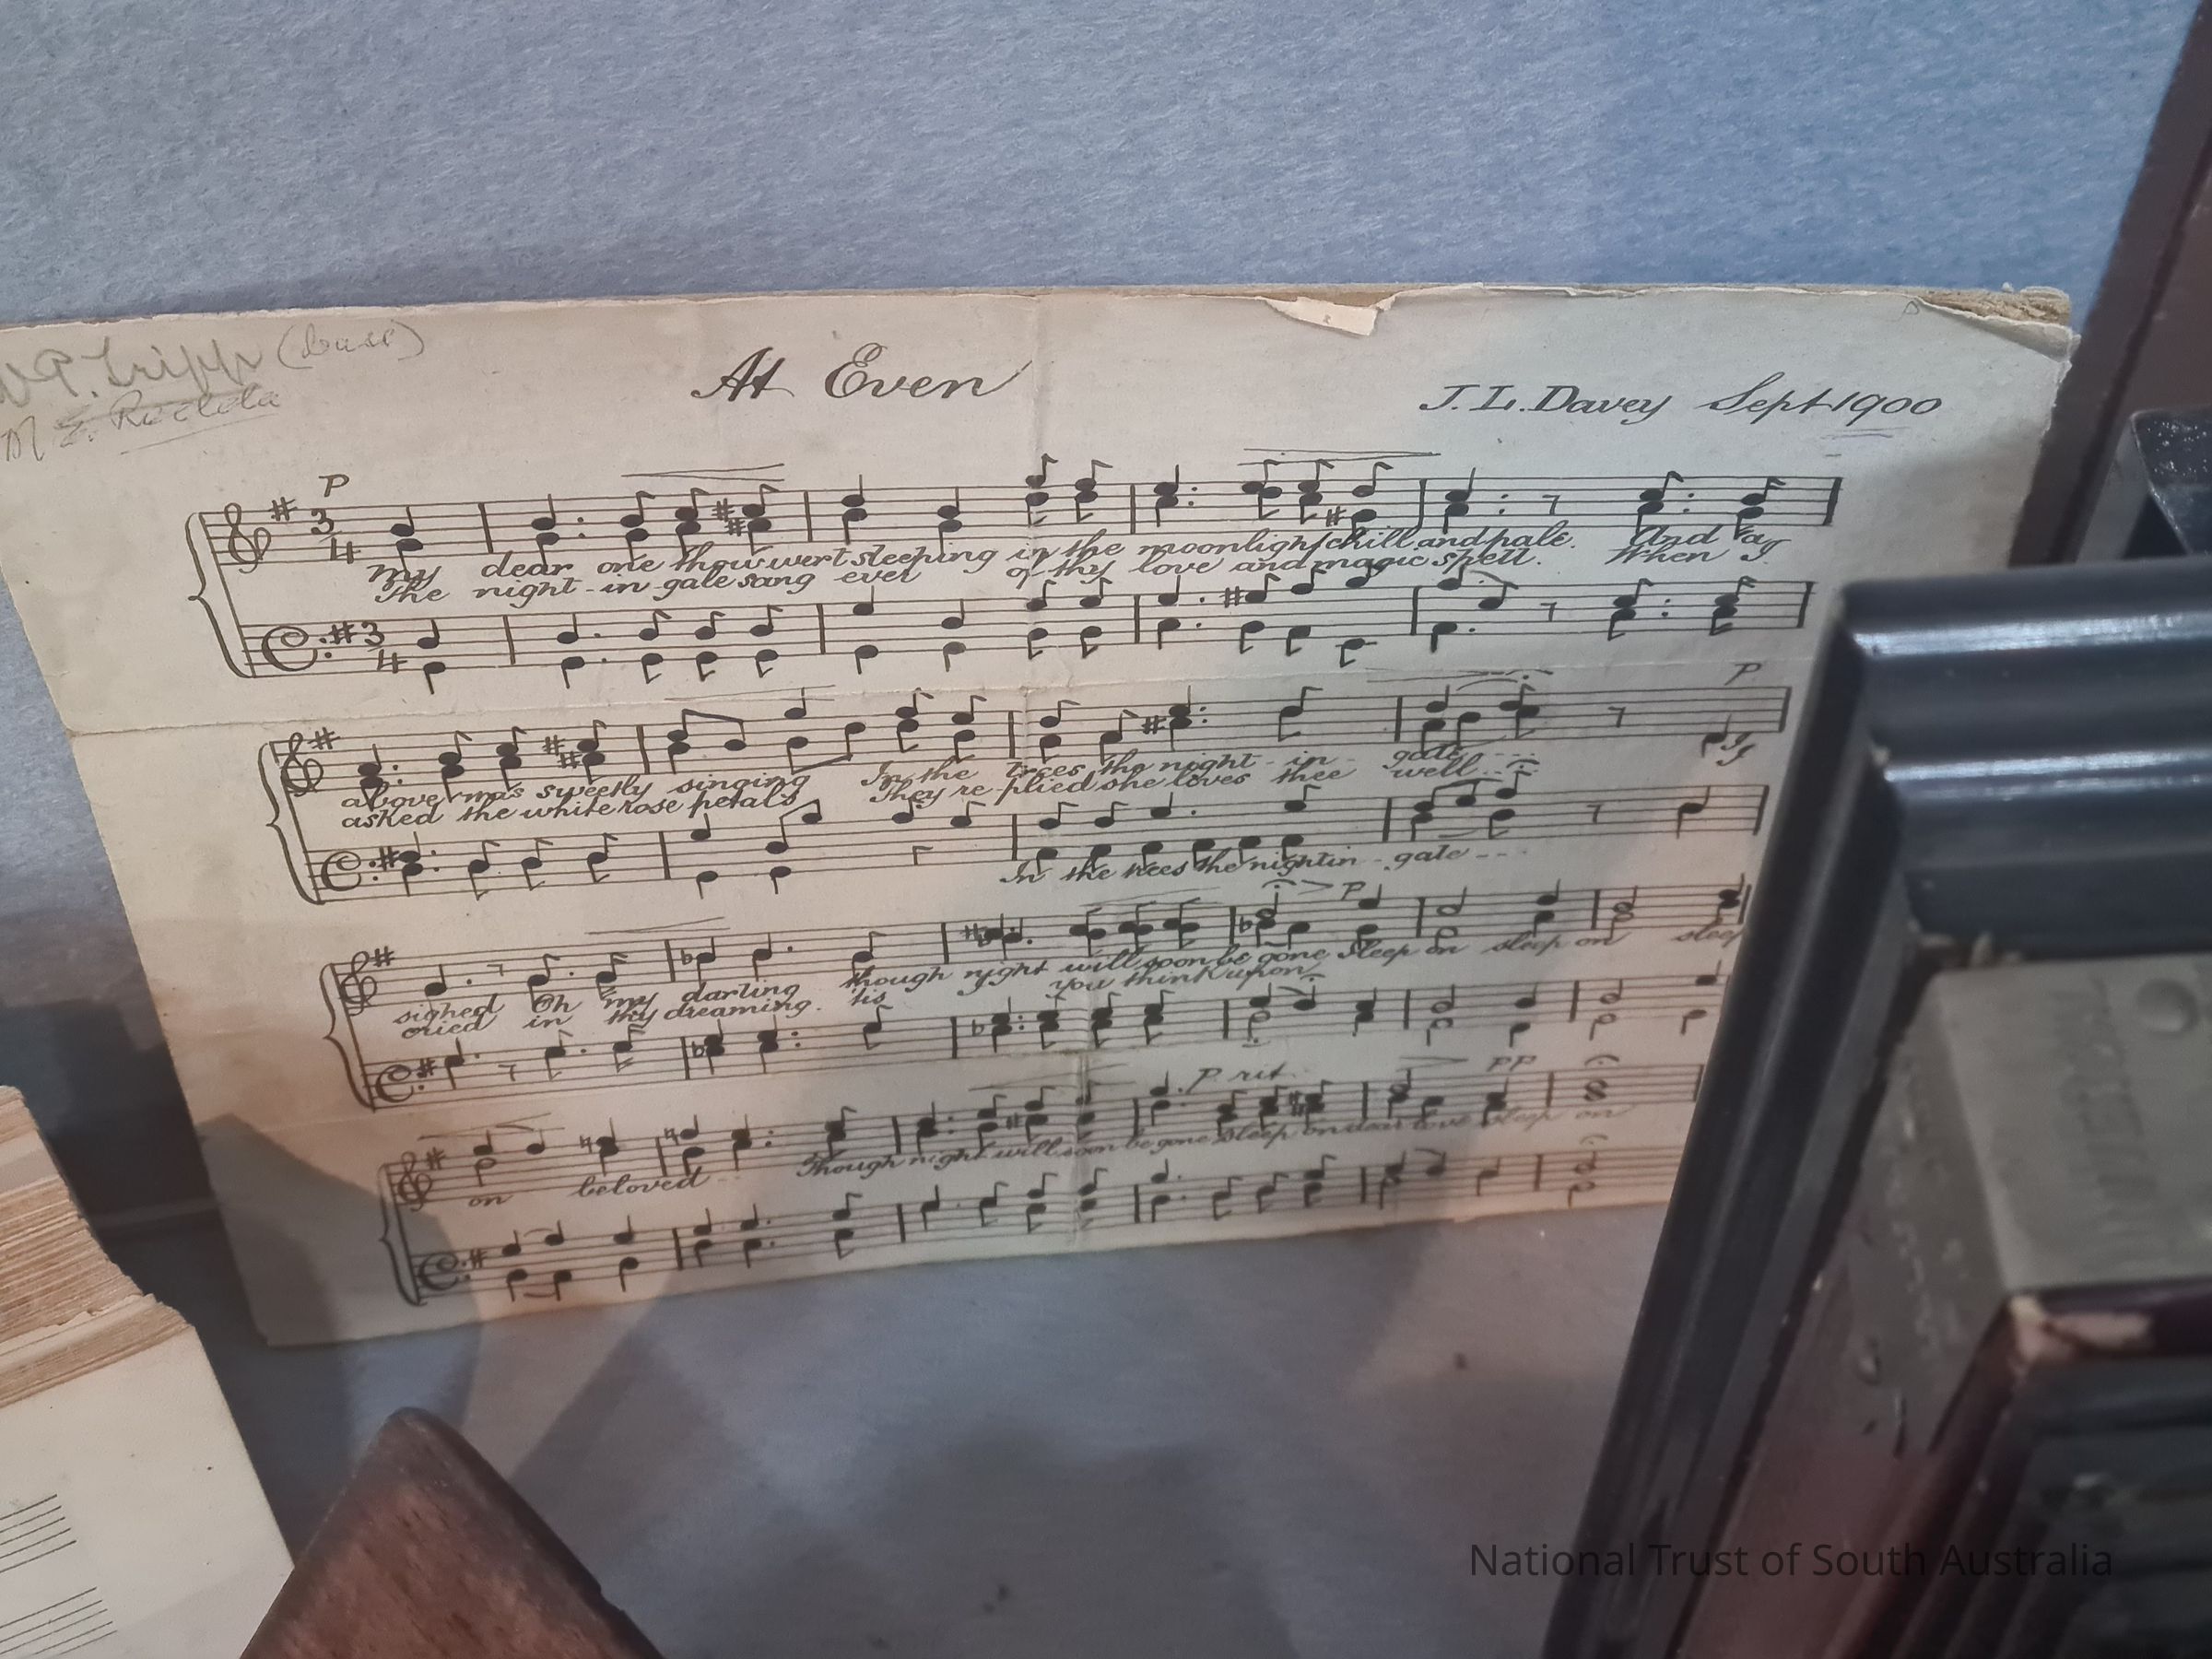 W.P. Tripp (bass)
At Even
J. L. Davey Sept 1900
P
3 4
My dear one thou wert sleeping in the moonlight chill and pale. And
The night-in-gale sang ever of thy love and magic spell. When I
3 4
P
above was sweetly singing In the trees the night-in-gale
asked the white rose petals They re plied she loves thee well
In the trees the nightin-gale
P
sighed Oh my darling though night will soon be gone Sleep on sleep on sleep
cried in thy dreaming. tis you think upon
P rit. PP
on beloved Though night will soon be gone Sleep on dear love sleep on
National Trust of South Australia